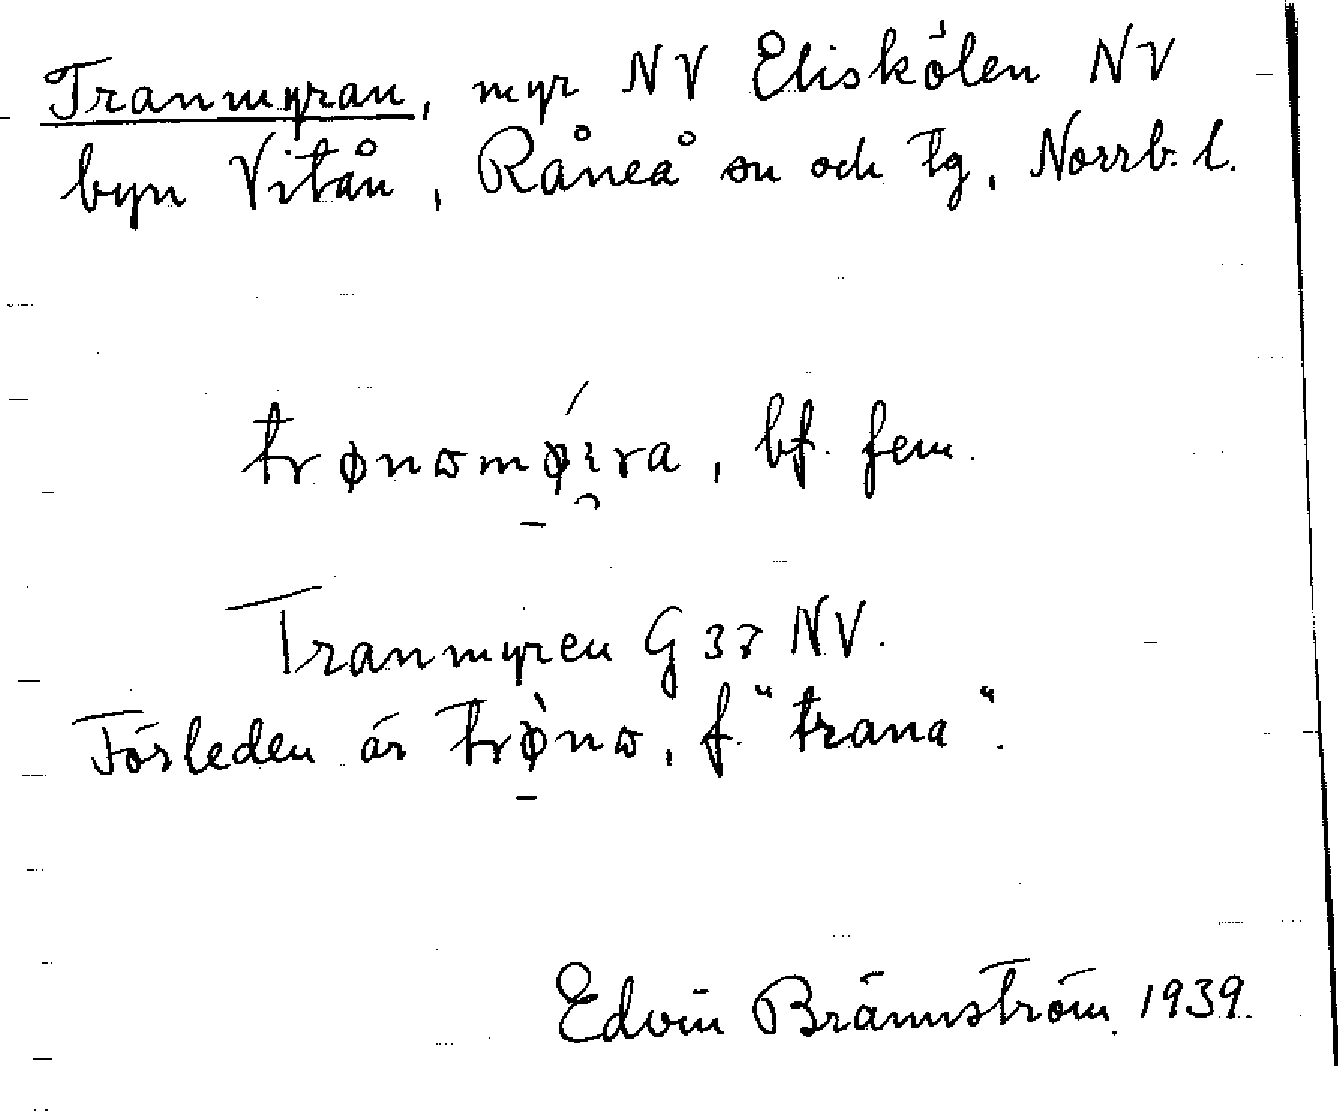 Tranmyran, myr NV Eliskölen NV
byn Vitån, Råneå sn och tg, Norrb. l.
trønɷmǿ̱ı̯ra, bf. fem.
Tranmyren G 37 NV.
Förleden är trø̱̀nɷ, f. "trana".
Edvin Brännström 1939.